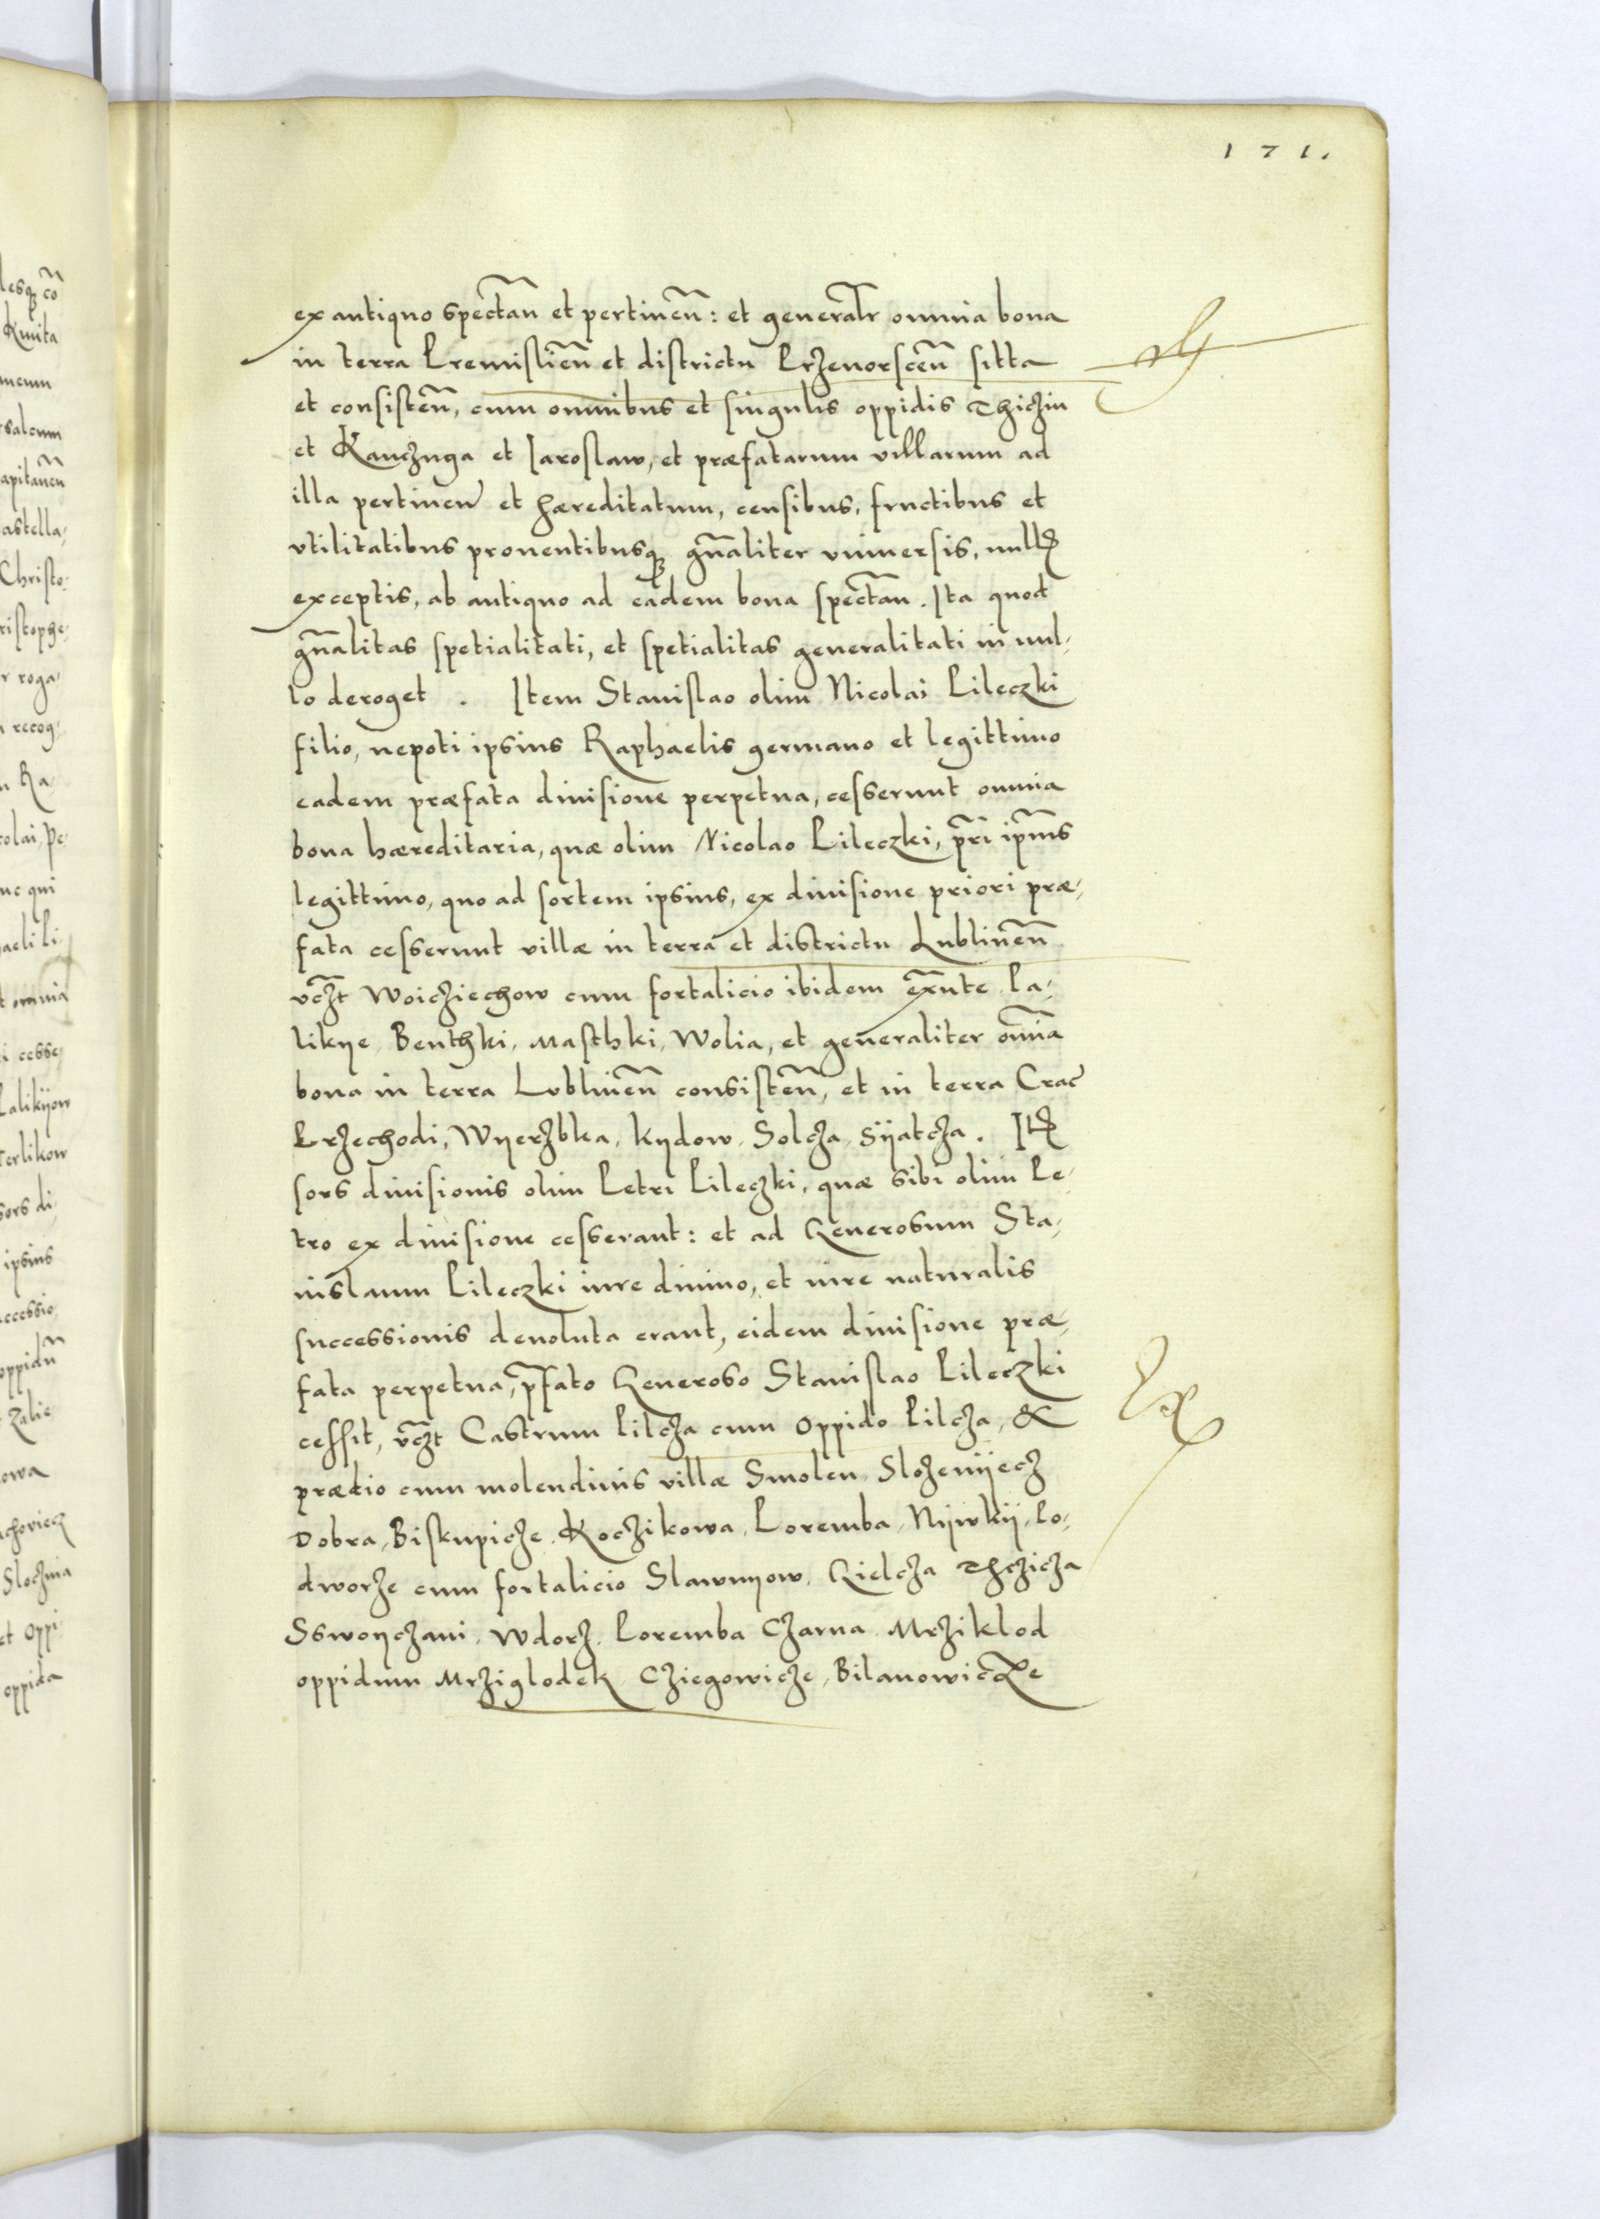 171.
ex antiquo spectan et pertinen: et generalr omnia bona
in terra Premislien et districtu Przevorscen sitta
et consisten, cum omnibus et singulis oppidis Thiczin
et Kanczuga et Jaroslaw, et præfatarum villarum ad
illa pertinen et hæreditatum, censibus, fructibus et
vtilitatibus proventibusq gnaliter universis, null
exceptis, ab antiquo ad eadem bona spectan. Ita quod
gnalitas spetialitati, et spetialitas generalitati in nul-
lo deroget. Item Stanislao olim Nicolai Pileczki
filio, nepoti ipsius Raphaelis germano et legittimo
eadem præfata divisione perpetua, cesserunt omnia
bona hæreditaria, quæ olim Nicolao Pileczki, pri ipius
legittimo, quo ad sortem ipsius, ex divisione priori præ-
fata cesserunt villæ in terra et districtu Lublinen
vczt Woicziechow cum fortalicio ibidem exnte Pa-
likye, Benthki, Masthki, Wolia, et generaliter omia
bona in terra Lvblinen consisten, et in terra Crac
Przechodi, Wyerzbka, Kydow, Solcza, Syatcza. It
sors divisionis olim Petri Pileczki, quæ sibi olim Pe-
tro ex divisione cesserant: et ad Generosum Sta-
nislaum Pileczki iure divino, et iure naturalis
successionis devoluta erant, eidem divisione præ-
fata perpetua, pfato Generoso Stanislao Pileczki
cessit, vczt Castrum Pilcza cum oppido Pilcza, &
prædio cum molendinis villæ Smolen, Slozenyecz
Dobra, Biskupicze, Koczikowa, Poremba, Nywky, Po-
dworze cum fortalicio Slawnyow, Gielcza Thczicza
Sswoyczani, Wdorz, Poremba Czarna Mrziklod
oppidum Mrziglodek, Cziegowicze, Bilanowicze